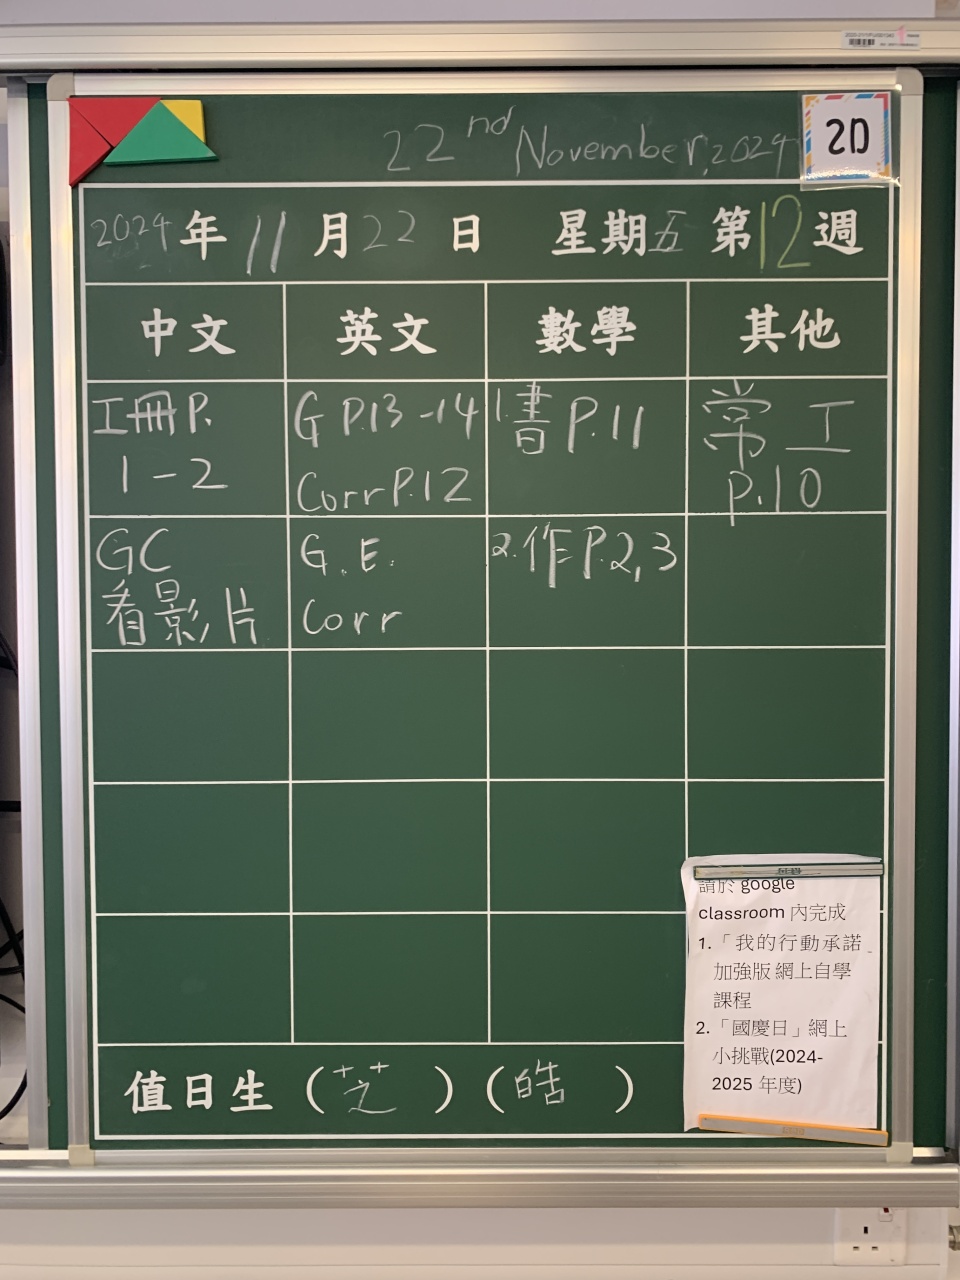 22nd November, 2024
2D
2024年11月22日 星期五 第12週
中文 英文 數學 其他
工冊P.
1-2
G P.13-14
Corr P.12
1.書P.11
常工
p.10
GC
看影片
G.E.
Corr
2.作P.2,3
請於 google
classroom 內完成
1.「我的行動承諾
加強版 網上自學
課程
2.「國慶日」網上
小挑戰(2024-
2025 年度)
值日生(芝)(皓)